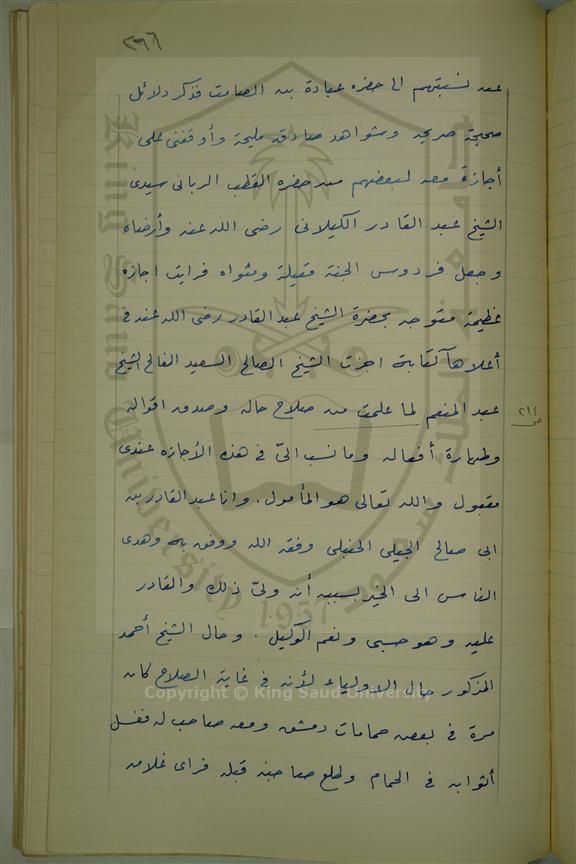 ٢٦٦
عن نسبتهم الى حضرة عبادة بن الصامت فذكر دلائل
صحيحة صريحه وشواهد صادقه مليحة وأوقفنى على
أجازة معه لبعضهم من حضرة القطب الربانى سيدى
الشيخ عبد القادر الكيلانى رضى الله عنه وأرضاه
وجعل فردوس الجنة مقيلة ومثواه فرايت اجازه
عظيمة متوجه بحضرة الشيخ عبد القادر رضى الله عنه فى
أعلاها كتابة اجزت الشيخ الصالح السعيد الفالح الشيخ
عبد المنعم لما علمت من صلاح حاله وصدق اقواله
٢١٤
ص
وطهارة أفعاله وما نسب الىّ فى هذه الأجازه عندى
مقبول والله تعالى هو المأمول. وانا عبد القادر بن
ابى صالح الجيلى الحنبلى وفقه الله ووفق به وهدى
الناس الى الخير بسببه أنه ولىّ ذلك والقادر
عليه وهو حسبى ونعم الوكيل. وحال الشيخ أحمد
المذكور حال الاولياء لأنه فى غاية الصلاح كان
مرة فى بعض حمامات دمشق ومعه صاحب له فغسل
أثوابه فى الحمام وطلع صاحبه قبله فراى غلامه
King Saud University
1957
Copyright © King Saud University